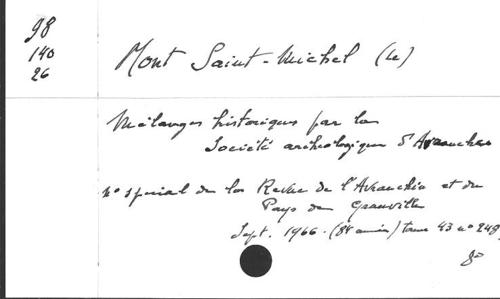 98
140
26
Mont Saint-Michel (Le)
Mélanges historiques par la
Société archéologique d'Avranches
n° spécial de la Revue de l'Avranchin et du
Pays de Granville
Sept. 1966. (84 année) tome 43 n° 248
8°